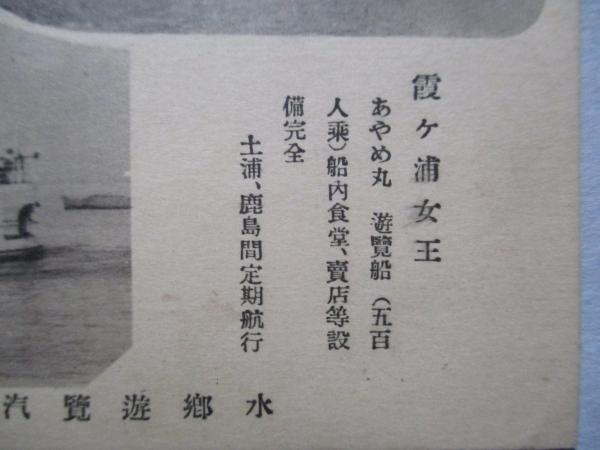 霞ヶ浦女王
あやめ丸　遊覽船（五百
人乘）船内食堂、賣店等設
備完全
土浦、鹿島間定期航行
水鄕遊覽汽